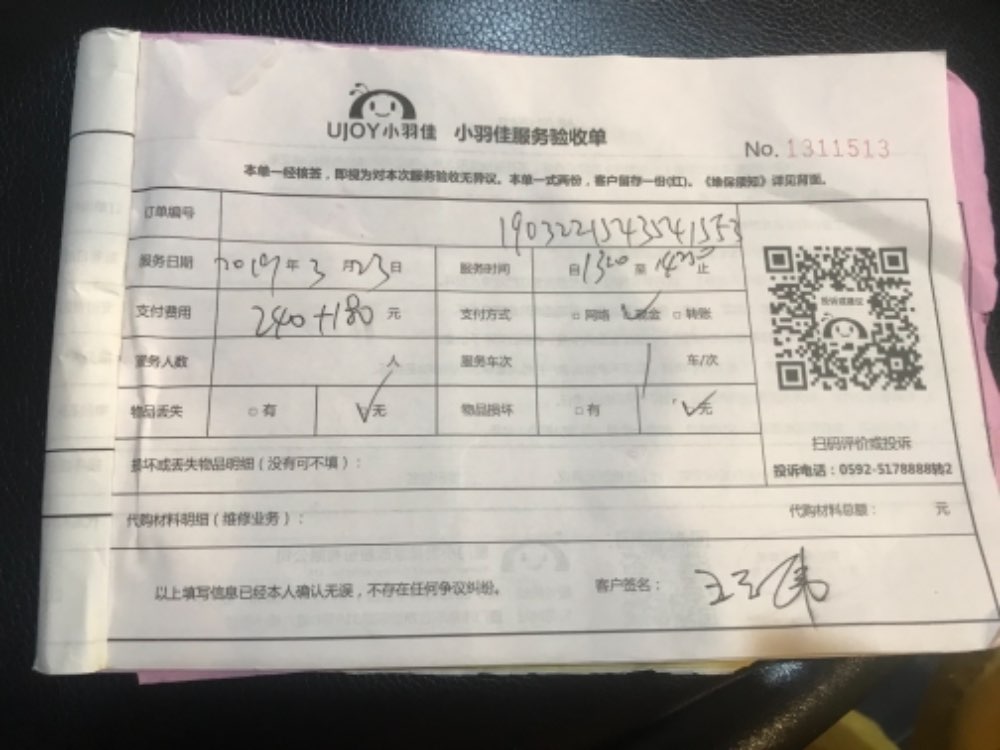 UJOY小羽佳 小羽佳服务验收单
No. 1311513
本单一经核签，即视为对本次服务验收无异议。本单一式两份，客户留存一份(红)。《维保须知》详见背面。
订单编号 1903221543541553
服务日期 2019年3月23日 服务时间 自1320至1420止
支付费用 240+180元 支付方式 □网络 ☑现金 □转账
服务人数 人 服务车次 1 车/次
物品丢失 □有 ☑无 物品损坏 □有 ☑无
投诉或建议
扫码评价或投诉
投诉电话：0592-5178888转2
损坏或丢失物品明细（没有可不填）：
代购材料明细（维修业务）： 代购材料总额： 元
以上填写信息已经本人确认无误，不存在任何争议纠纷。 客户签名：